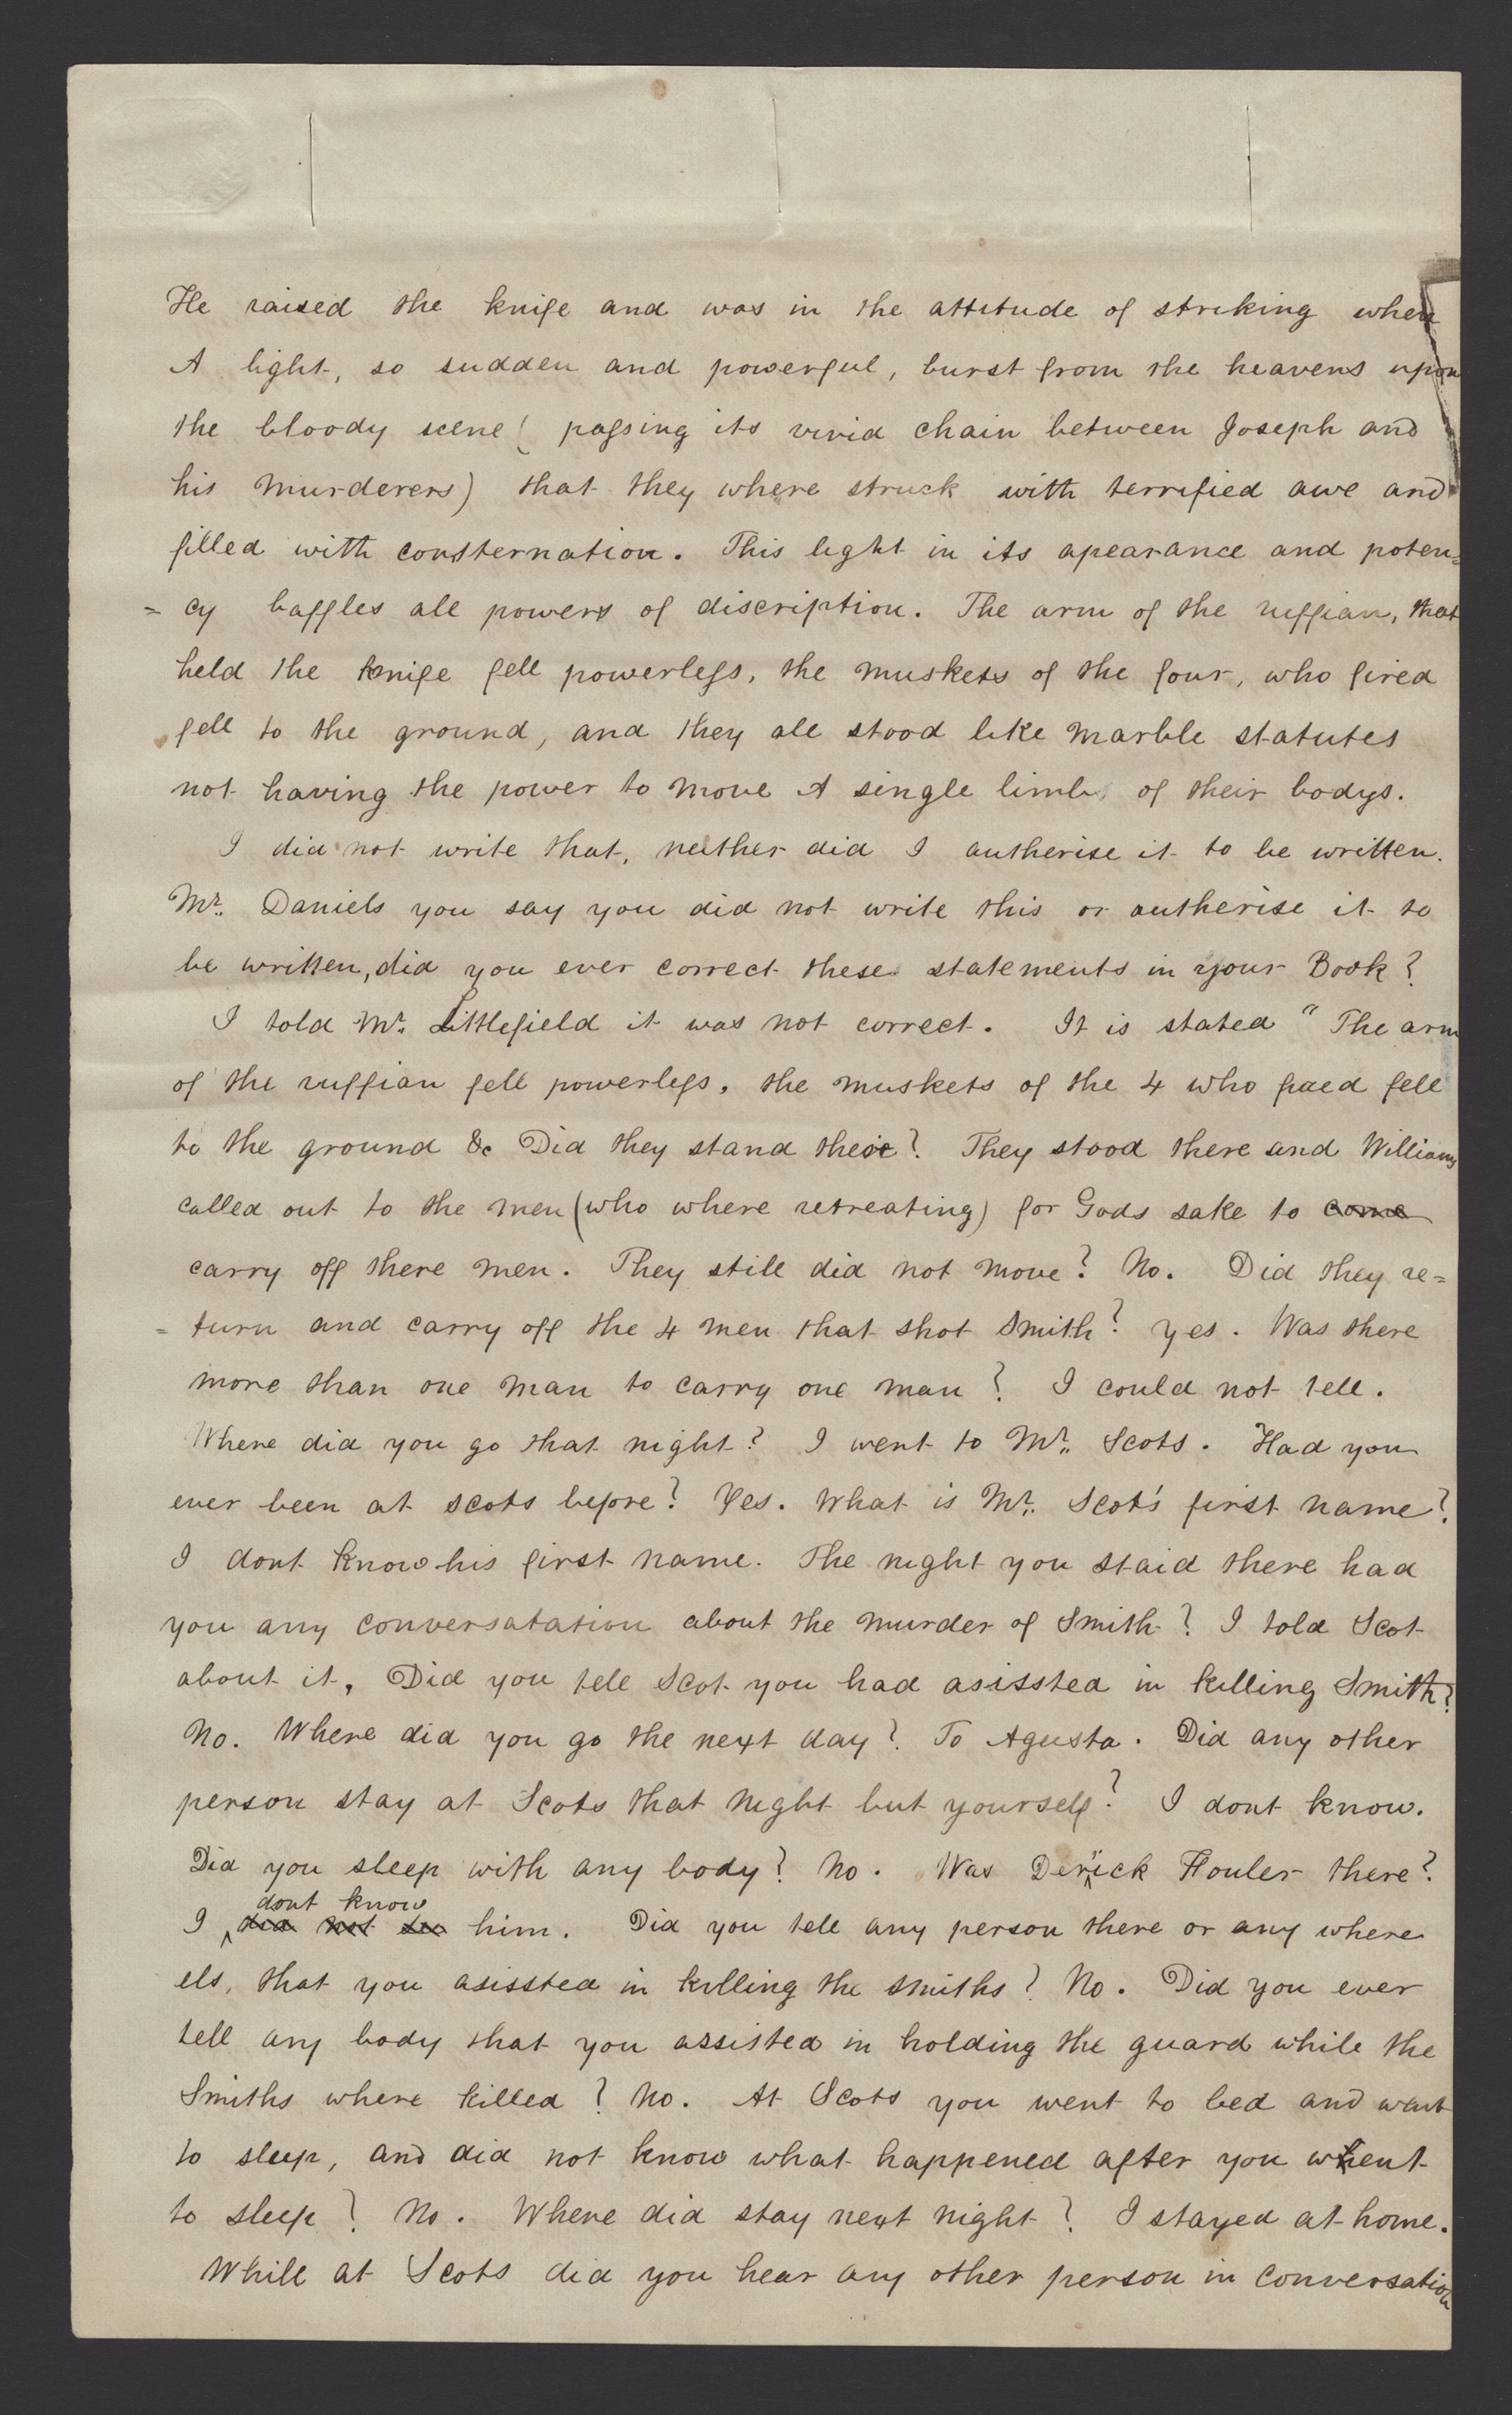 He raised the knife and was in the attitude of striking when
A light, so sudden and powerful, burst from the heavens upon
the bloody scene ( passing its vivid chain between Joseph and
his murderers) that they where struck with terrified awe and
filled with consternation. This light in its apearance and poten=
= cy baffles all powers of discription. The arm of the ruffian, that
held the knife fell powerless, the muskets of the four, who fired
fell to the ground, and they all stood like marble statutes
not having the power to move A single limb of their bodys.
I did not write that, neither did I autherise it to be written.
Mr. Daniels you say you did not write this or autherise it to
be written, did you ever correct these statements in your Book?
I told Mr. Littlefield it was not correct. It is stated " The arm
of the ruffian fell powerless, the muskets of the 4 who fired fell
to the ground &c Did they stand there? They stood there and Williams
called out to the men (who where retreating) for Gods sake to come
carry off there men. They still did not move? No. Did they re=
= turn and carry off the 4 men that shot Smith? yes. Was there
more than one man to carry one man? I could not tell.
Where did you go that night? I went to Mr. Scots. Had you
ever been at scots before? Yes. What is Mr. Scot's first name?
I dont know his first name. The night you staid there had
you any conversatation about the murder of Smith? I told Scot
about it, Did you tell Scot you had asissted in killing Smith?
No. Where did you go the next day? To Agusta. Did any other
person stay at Scots that night but yourself? I dont know.
Did you sleep with any body? No. Was Derick Fouler there?
dont know
I did not see him. Did you tell any person there or any where
els, that you asissted in killing the smiths? No. Did you ever
tell any body that you assisted in holding the guard while the
Smiths where killed? No. At Scots you went to bed and went
to sleep, and did not know what happened after you went
to sleep? No. Where did stay next night? I stayed at home.
While at Scots did you hear any other person in conversation